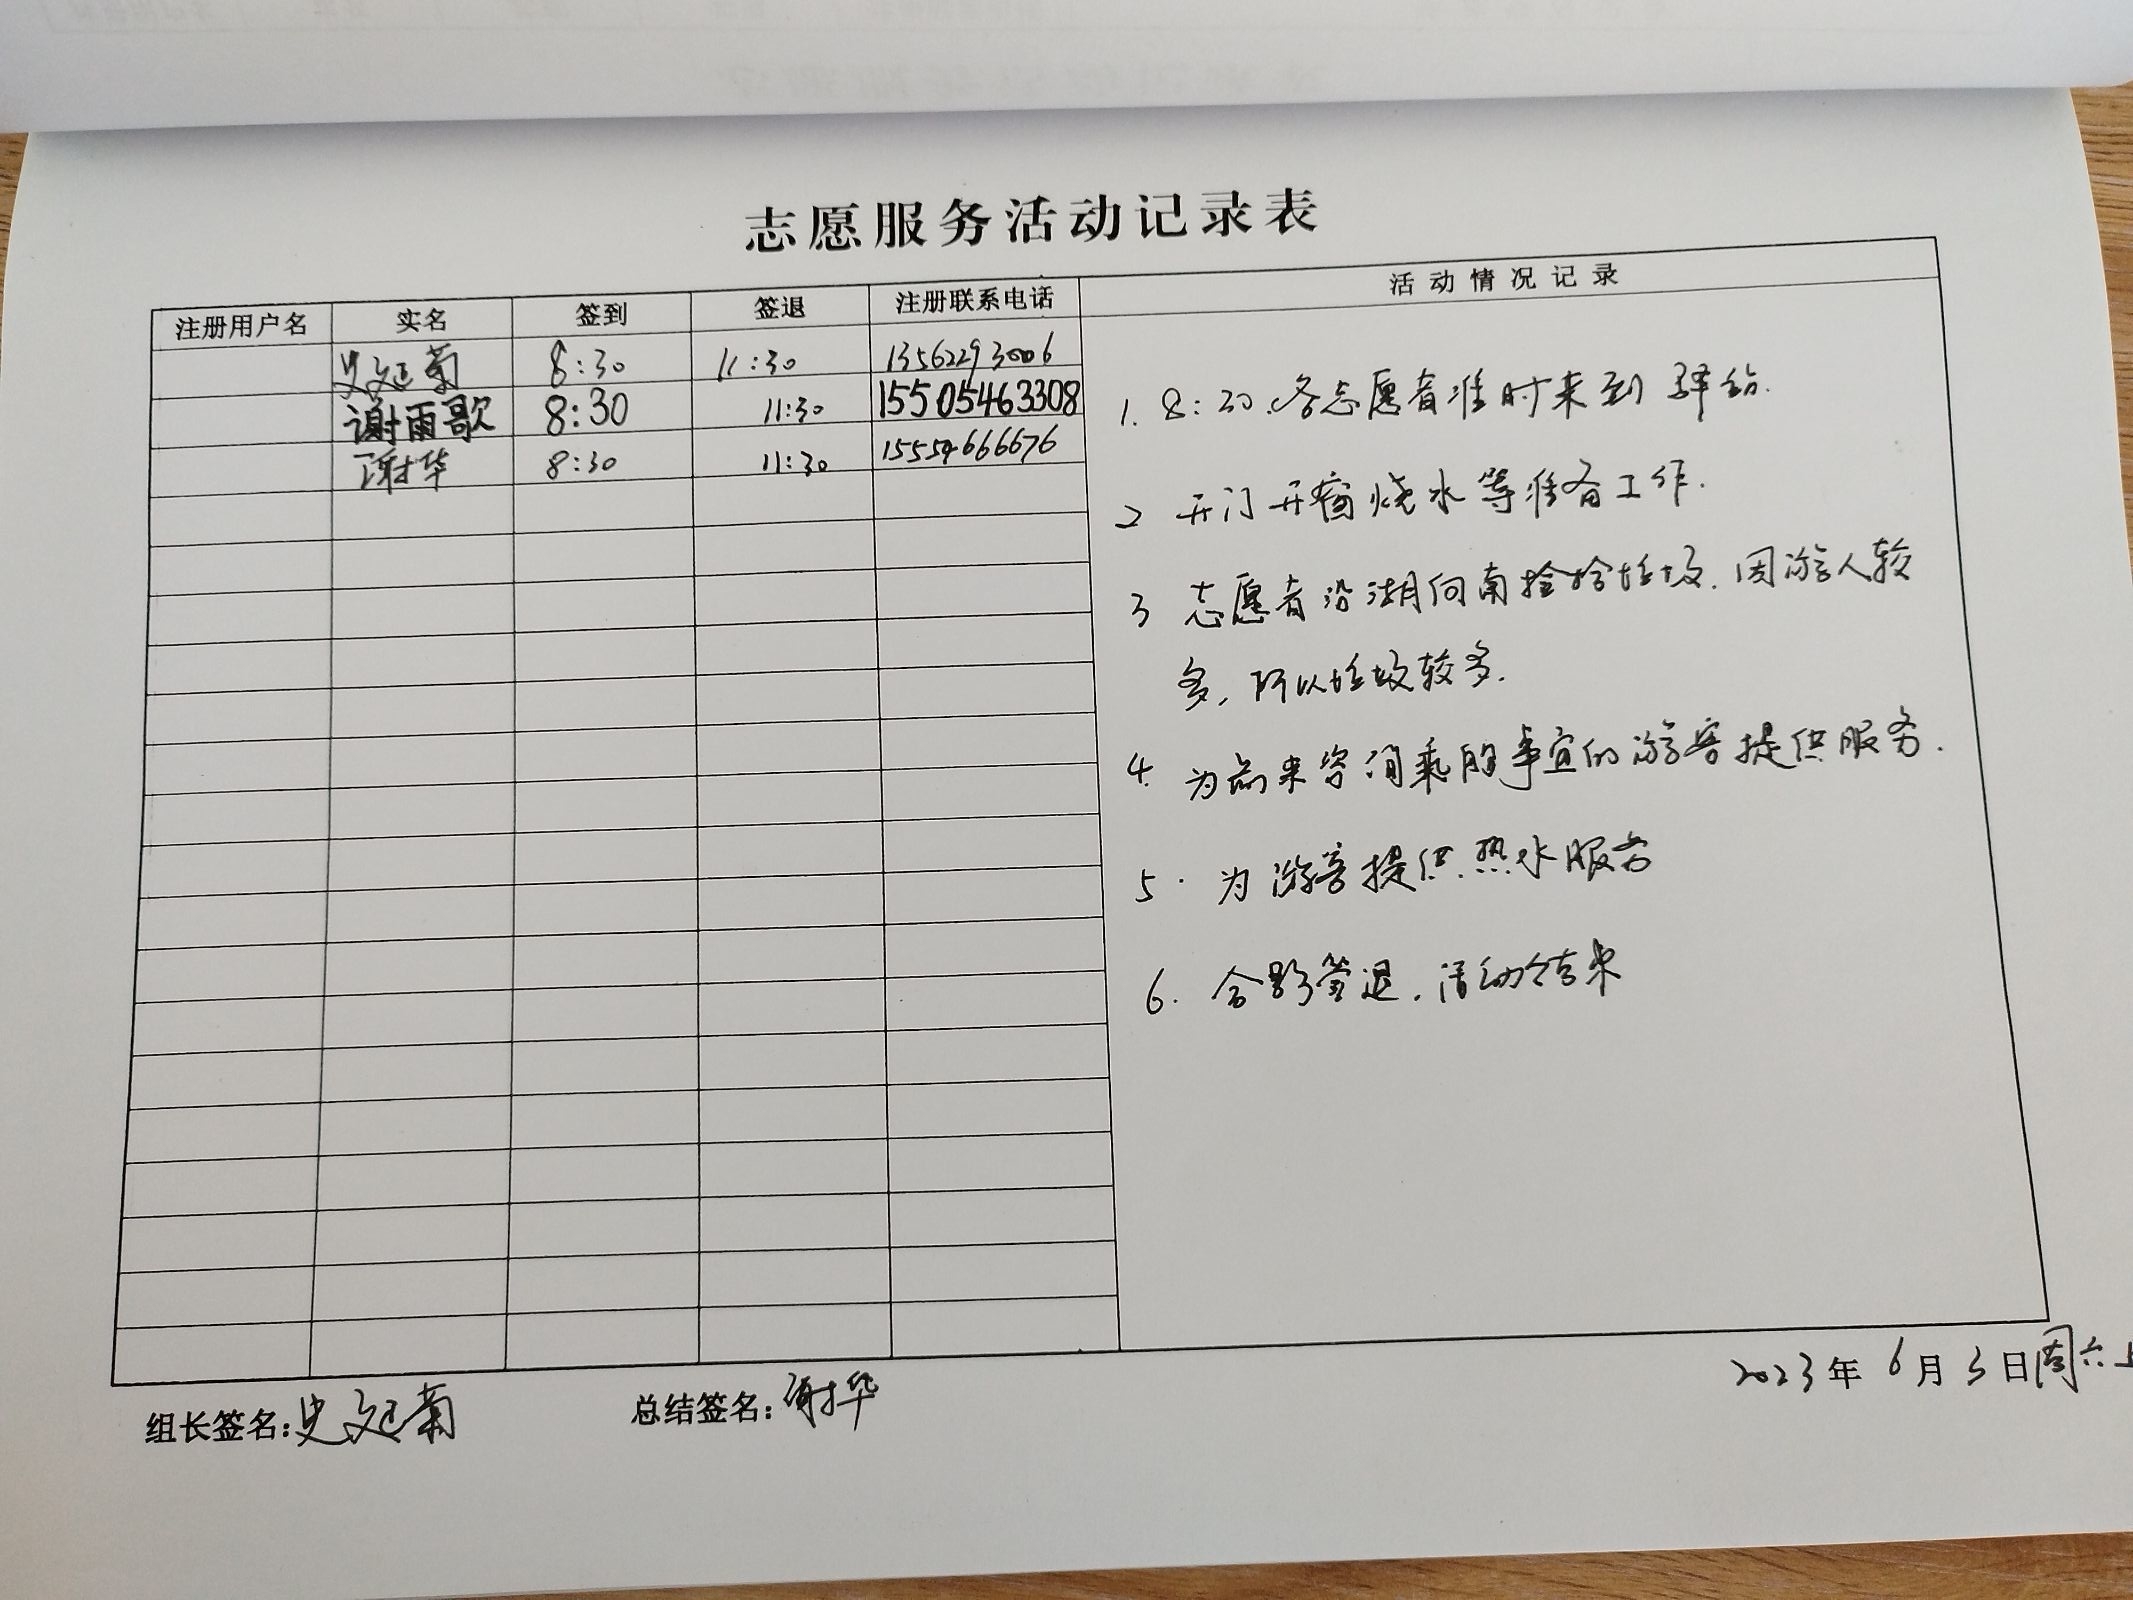 志愿服务活动记录表
注册用户名 实名 签到 签退 注册联系电话 活动情况记录
史延菊 8:30 11:30 13562293006
谢雨歌 8:30 11:30 15505463308
谢华 8:30 11:30 15554666676
1. 8:30.各志愿者准时来到驿站.
2 开门开窗烧水等准备工作.
3 志愿者沿湖向南捡拾垃圾.因游人较
多,所以垃圾较多.
4. 为前来咨询乘船事宜的游客提供服务.
5. 为游客提供热水服务
6. 合影签退.活动结束
2023年6月3日周六上
组长签名:史延菊 总结签名:谢华